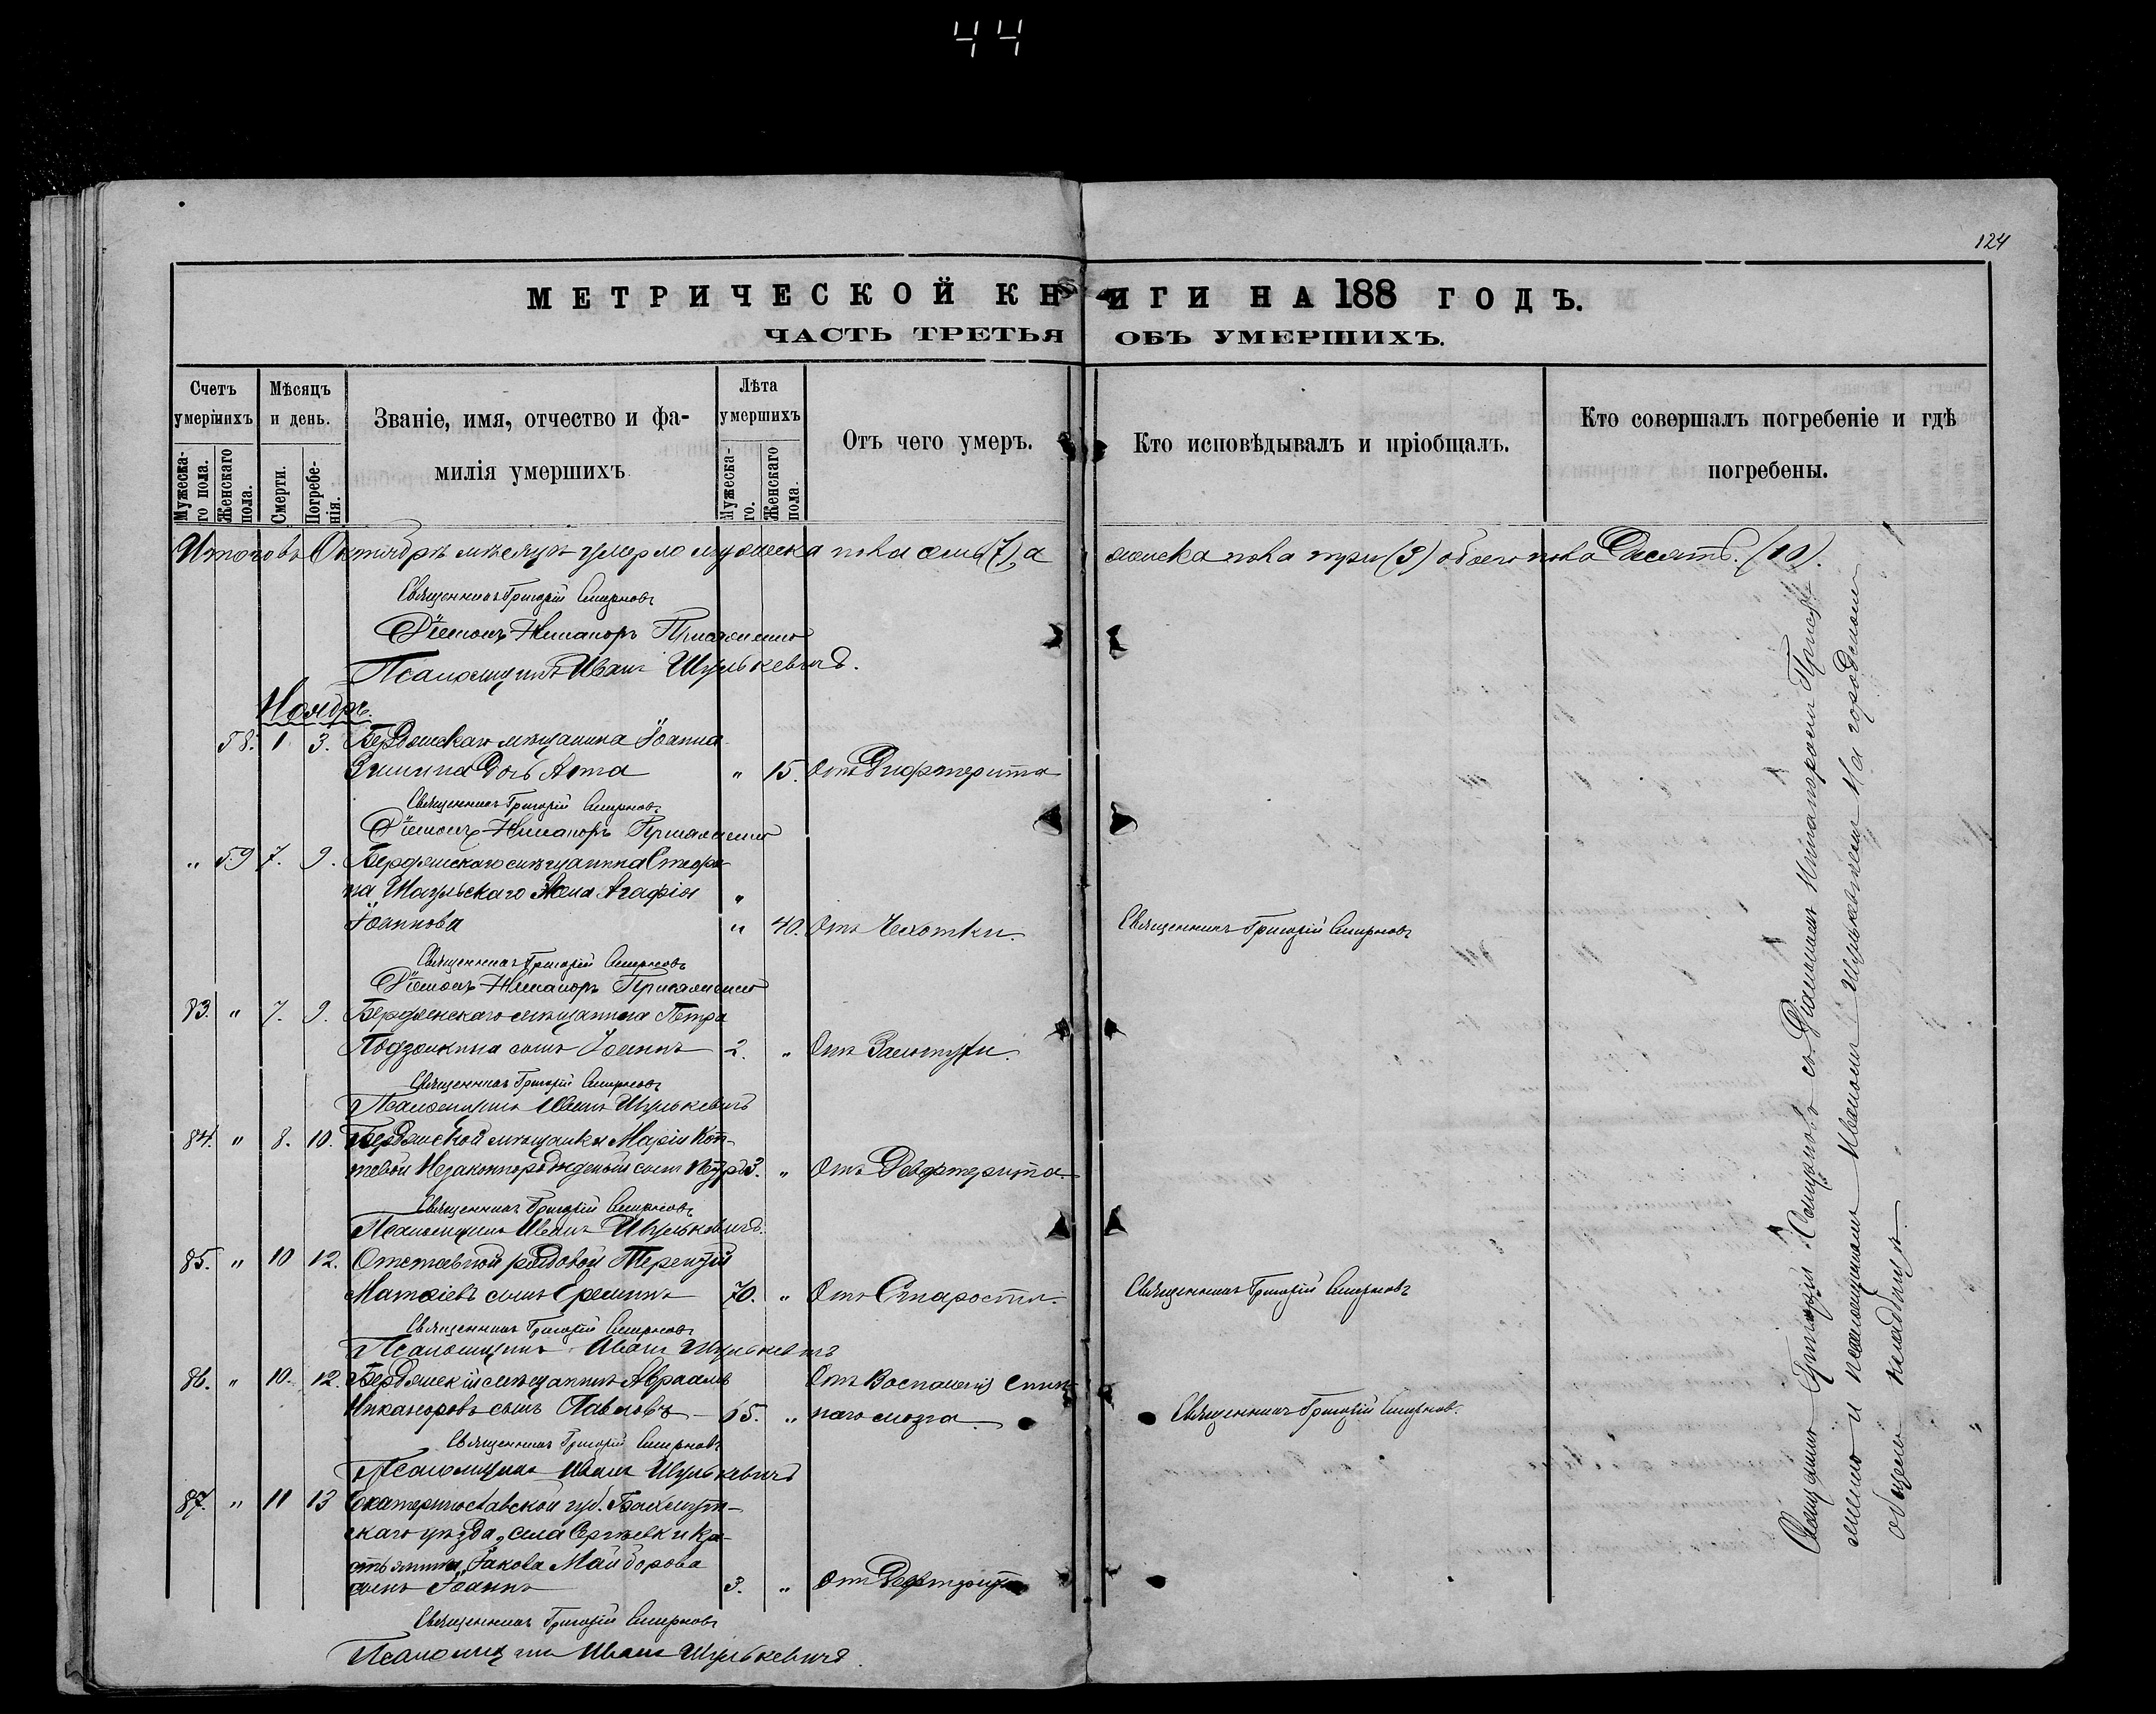 44
124
МЕТРИЧЕСКОЙ КНИГИ НА 188 ГОДЪ.
ЧАСТЬ ТРЕТЬЯ ОБЪ УМЕРШИХЪ.
Счетъ умершихъ
Мѣсяцъ и день.
Званіе, имя, отчество и фамилія умершихъ
Лѣта умершихъ
Отъ чего умеръ.
Кто исповѣдывалъ и пріобщалъ.
Кто совершалъ погребеніе и гдѣ погребены.
Мужескаго пола.
Женскаго пола.
Смерти.
Погребенія.
Мужескаго.
Женскаго пола.
Итого въ Октябрѣ мѣсяцѣ умерло мужеска пола семь (7), а женска пола три (3) обоего пола Десять. (10).
Священникъ Григорій Смирновъ
Діаконъ Никаноръ
Псаломщикъ Иванъ Шулькевичъ.
Ноябрь.
58. 1 3. Бердянскаго мѣщанина Іоанна
дочь Анна " 15. Отъ Дифтерита
Священникъ Григорій Смирновъ
Діаконъ Никаноръ
" 59 7. 9. Бердянскаго мѣщанина Стефа-
на Шагульскаго жена Агафія "
Іоаннова " 40. Отъ Чахотки. Священникъ Григорій Смирновъ
Священникъ Григорій Смирновъ
Діаконъ Никаноръ
83. " 7. 9. Бердянскаго мѣщанина Петра
сынъ Іоаннъ 2. " Отъ
Священникъ Григорій Смирновъ
Псаломщикъ Иванъ Шулькевичъ
84. " 8. 10. Бердянской мѣщанки Маріи Коп-
тевой Незаконнорожденый сынъ Петръ 3. " Отъ Дифтерита.
Священникъ Григорій Смирновъ
Псаломщикъ Иванъ Шулькевичъ.
85. " 10 12. Отставной рядовой Терентій
Матѳіевъ сынъ 70. " Отъ Старости. Священникъ Григорій Смирновъ
Священникъ Григорій Смирновъ
Псаломщикъ Иванъ Шулькевичъ
86. " 10. 12. Бердянскій мѣщанинъ Авраамъ Отъ Воспаленія спин-
Никаноровъ сынъ Павловъ 65. " наго мозга. Священникъ Григорій Смирновъ.
Священникъ Григорій Смирновъ
Псаломщикъ Иванъ Шулькевичъ
87. " 11 13 Екатеринославской губ. Бахмут-
скаго уѣзда, села Сергѣевки кре-
стьянина Іакова Майборова
сынъ Іоаннъ 3. " Отъ Дифтерита
Священникъ Григорій Смирновъ
Псаломщикъ Иванъ Шулькевичъ.
Священникъ Григорій Смирновъ съ Діакономъ Никаноромъ
и псаломщикомъ Иваномъ Шулькевичемъ На городскомъ
общемъ кладбищѣ.